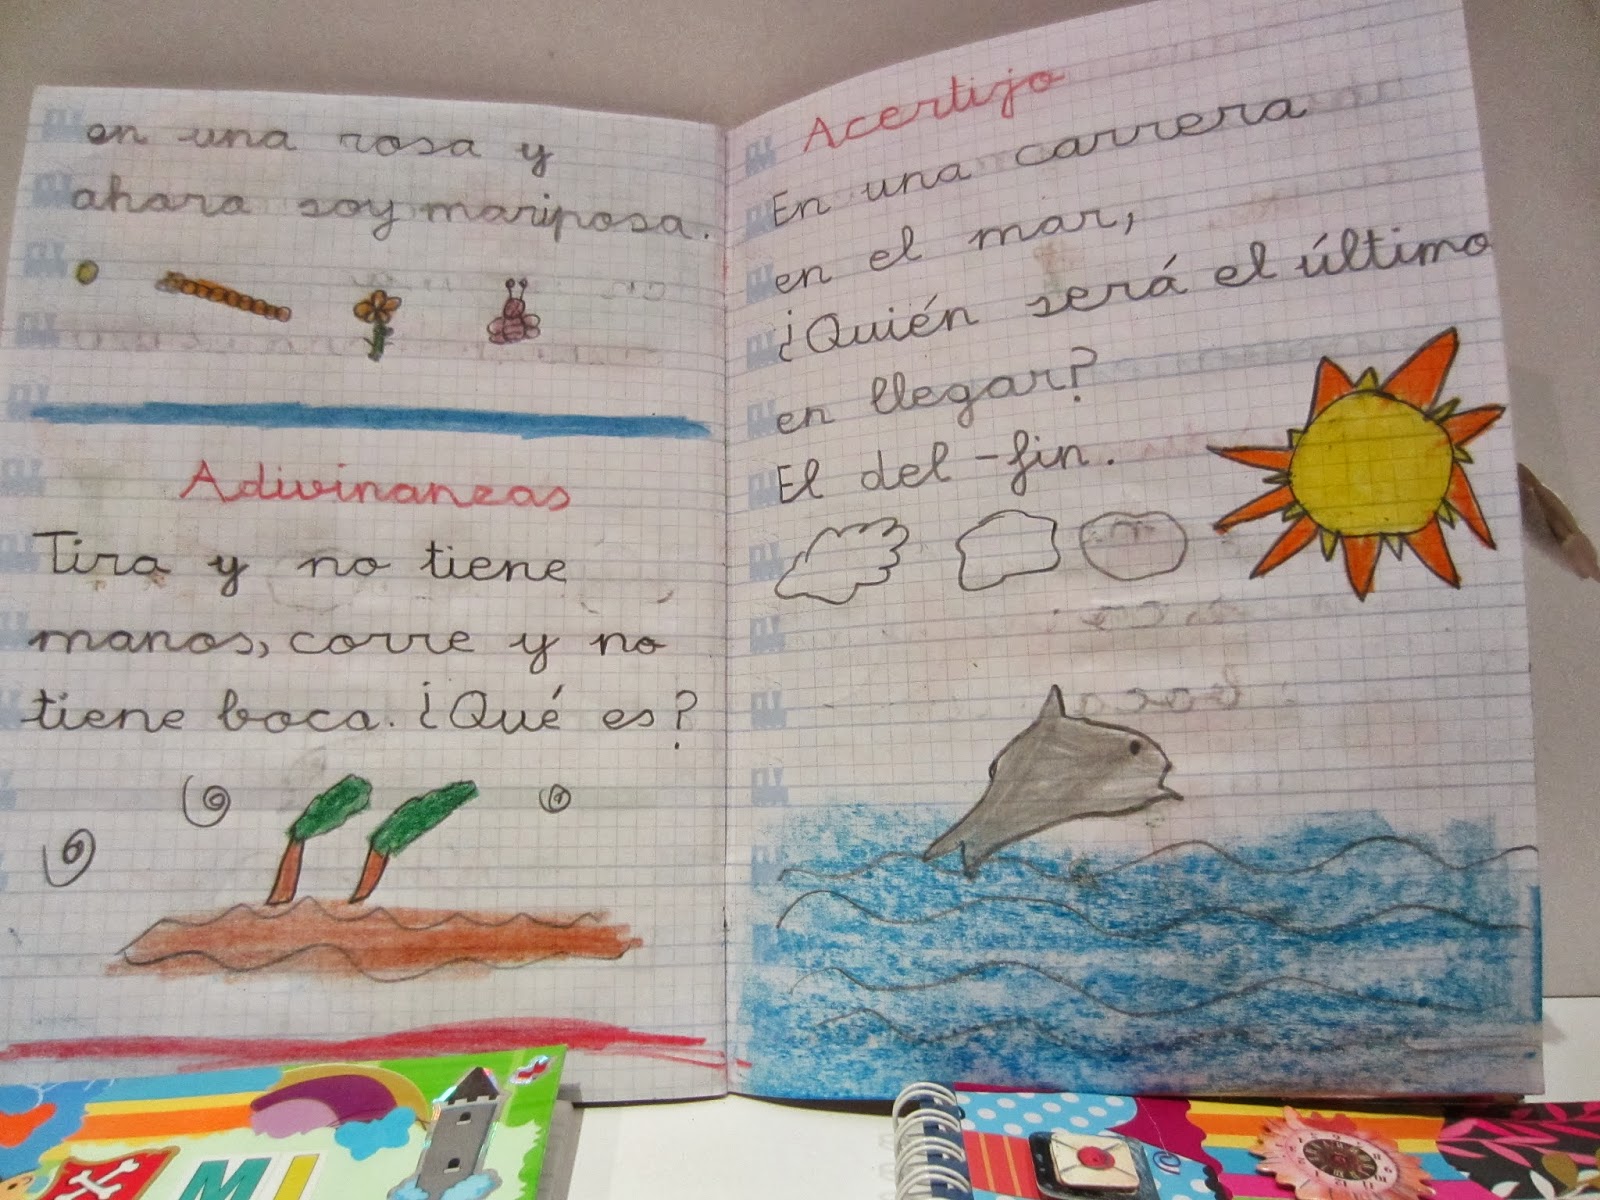 en una rosa y
ahora soy mariposa.
Adivinanzas
Tira y no tiene
manos, corre y no
tiene boca. ¿Qué es?
Acertijo
En una carrera
en el mar,
¿Quién será el último
en llegar?
El del-fin.
MI